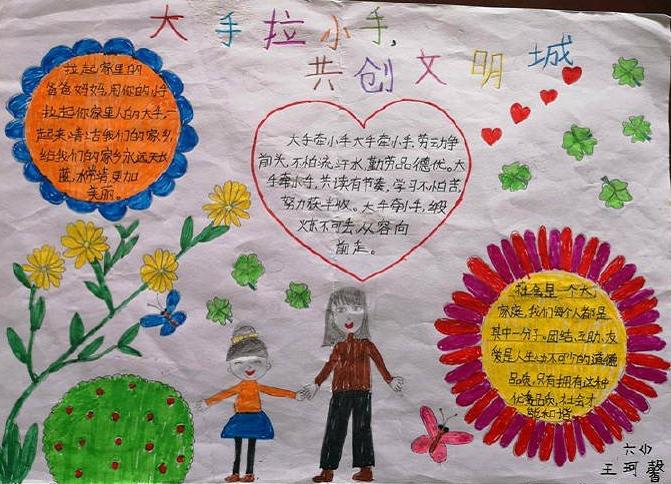 大手拉小手,
共创文明城
拉起家里的
爸爸妈妈,用你的小手
拉起你家里人的大手,一
起来清洁我们的家乡,
给我们的家乡永远天长
蓝,水常清,更加
美丽。
大手牵小手大手牵小手,劳动争
前头,不怕流汗水,勤劳品德优。大
手牵小手,共读有节奏,学习不怕苦,
努力获丰收。大手牵小手,
火不可丢,从容向
前走。
社会是一个大
家庭,我们每个人都是
其中一分子。团结、互助、友
爱是人生必不可少的道德
品质,只有拥有这种
优秀品质,社会才
能和谐。
六小
王珂馨